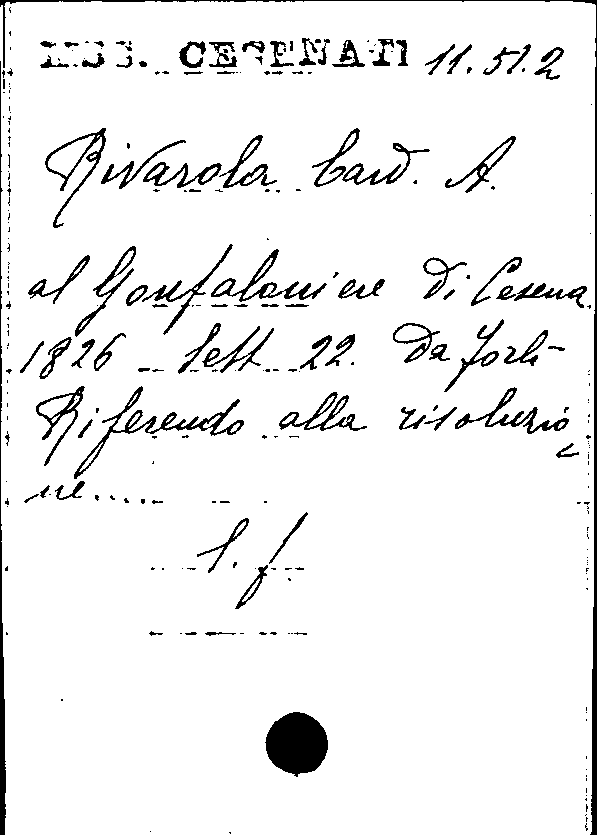 MSS. CESENATI 11.51.2
Rivarola Card. A.
al Gonfaloniere di Cesena
1826 Sett 22. Da Forlì
Riferendo alla risoluzio
ne.....
l. f.